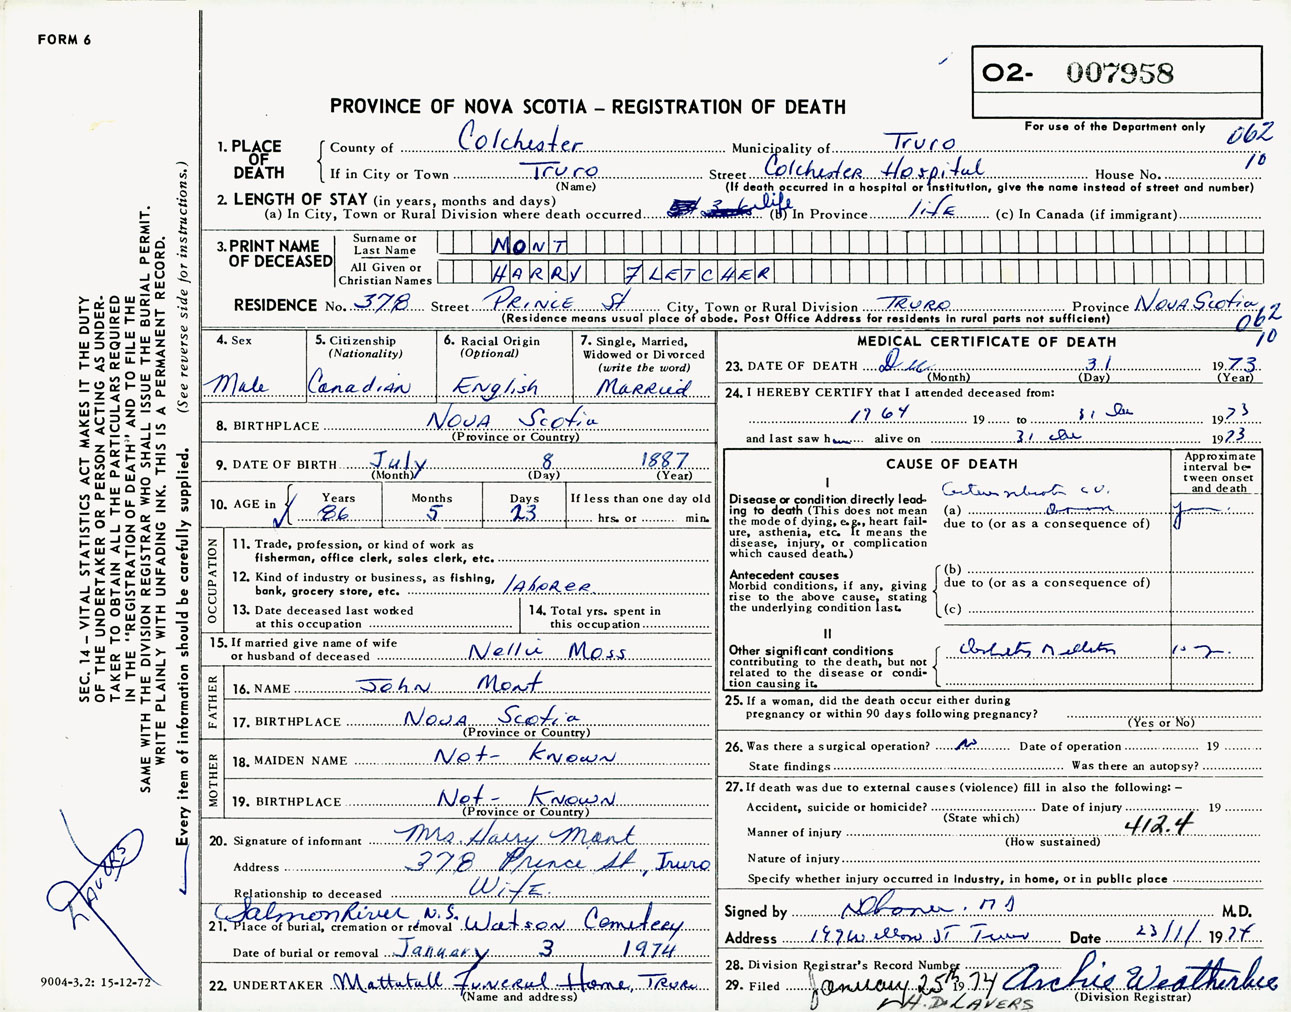 FORM 6
O2- 007958
PROVINCE OF NOVA SCOTIA – REGISTRATION OF DEATH
For use of the Department only
062
10
1. PLACE OF DEATH
County of Colchester Municipality of Truro
If in City or Town Truro Street Colchester Hospital House No.
(Name) (If death occurred in a hospital or institution, give the name instead of street and number)
2. LENGTH OF STAY (in years, months and days)
(a) In City, Town or Rural Division where death occurred life (b) In Province life (c) In Canada (if immigrant)
3. PRINT NAME OF DECEASED
Surname or Last Name MONT
All Given or Christian Names HARRY FLETCHER
RESIDENCE No. 378 Street Prince St City, Town or Rural Division TRURO Province Nova Scotia
(Residence means usual place of abode. Post Office Address for residents in rural parts not sufficient)
062
10
4. Sex Male
5. Citizenship (Nationality) Canadian
6. Racial Origin (Optional) English
7. Single, Married, Widowed or Divorced (write the word) Married
8. BIRTHPLACE Nova Scotia
(Province or Country)
9. DATE OF BIRTH July 8 1887
(Month) (Day) (Year)
10. AGE in Years 86 Months 5 Days 23 If less than one day old hrs. or min.
OCCUPATION
11. Trade, profession, or kind of work as fisherman, office clerk, sales clerk, etc.
12. Kind of industry or business, as fishing, bank, grocery store, etc. laborer
13. Date deceased last worked at this occupation
14. Total yrs. spent in this occupation
15. If married give name of wife or husband of deceased Nellie Moss
FATHER
16. NAME John Mont
17. BIRTHPLACE Nova Scotia
(Province or Country)
MOTHER
18. MAIDEN NAME Not- Known
19. BIRTHPLACE Not- Known
(Province or Country)
20. Signature of informant Mrs. Harry Mont
Address 378 Prince St., Truro
Relationship to deceased Wife.
Salmon River, N.S.
21. Place of burial, cremation or removal Watson Cemetery
Date of burial or removal January 3 1974
22. UNDERTAKER Mattatall Funeral Home, Truro
(Name and address)
MEDICAL CERTIFICATE OF DEATH
23. DATE OF DEATH Dec 31 1973
(Month) (Day) (Year)
24. I HEREBY CERTIFY that I attended deceased from:
1964 19 to 31 Dec 1973
and last saw h alive on 31 Dec 1973
CAUSE OF DEATH
Approximate interval between onset and death
I
Disease or condition directly leading to death (This does not mean the mode of dying, e.g., heart failure, asthenia, etc. It means the disease, injury, or complication which caused death.)
(a)
due to (or as a consequence of)
Antecedent causes
Morbid conditions, if any, giving rise to the above cause, stating the underlying condition last.
(b)
due to (or as a consequence of)
(c)
II
Other significant conditions contributing to the death, but not related to the disease or condition causing it.
25. If a woman, did the death occur either during pregnancy or within 90 days following pregnancy?
(Yes or No)
26. Was there a surgical operation? No Date of operation 19
State findings Was there an autopsy?
27. If death was due to external causes (violence) fill in also the following: –
Accident, suicide or homicide? Date of injury 19
(State which)
412.4
Manner of injury
(How sustained)
Nature of injury
Specify whether injury occurred in industry, in home, or in public place
Signed by M.D.
Address Willow ST Truro Date 23/1/ 1974
28. Division Registrar's Record Number
29. Filed January 25th 1974 Archie Weatherbee
(Division Registrar)
H. D. LAVERS
SEC. 14 – VITAL STATISTICS ACT MAKES IT THE DUTY
OF THE UNDERTAKER OR PERSON ACTING AS UNDER-
TAKER TO OBTAIN ALL THE PARTICULARS REQUIRED
IN THE "REGISTRATION OF DEATH" AND TO FILE THE
SAME WITH THE DIVISION REGISTRAR WHO SHALL ISSUE THE BURIAL PERMIT.
WRITE PLAINLY WITH UNFADING INK. THIS IS A PERMANENT RECORD.
Every item of information should be carefully supplied. (See reverse side for instructions.)
LAVERS
9004-3.2: 15-12-72